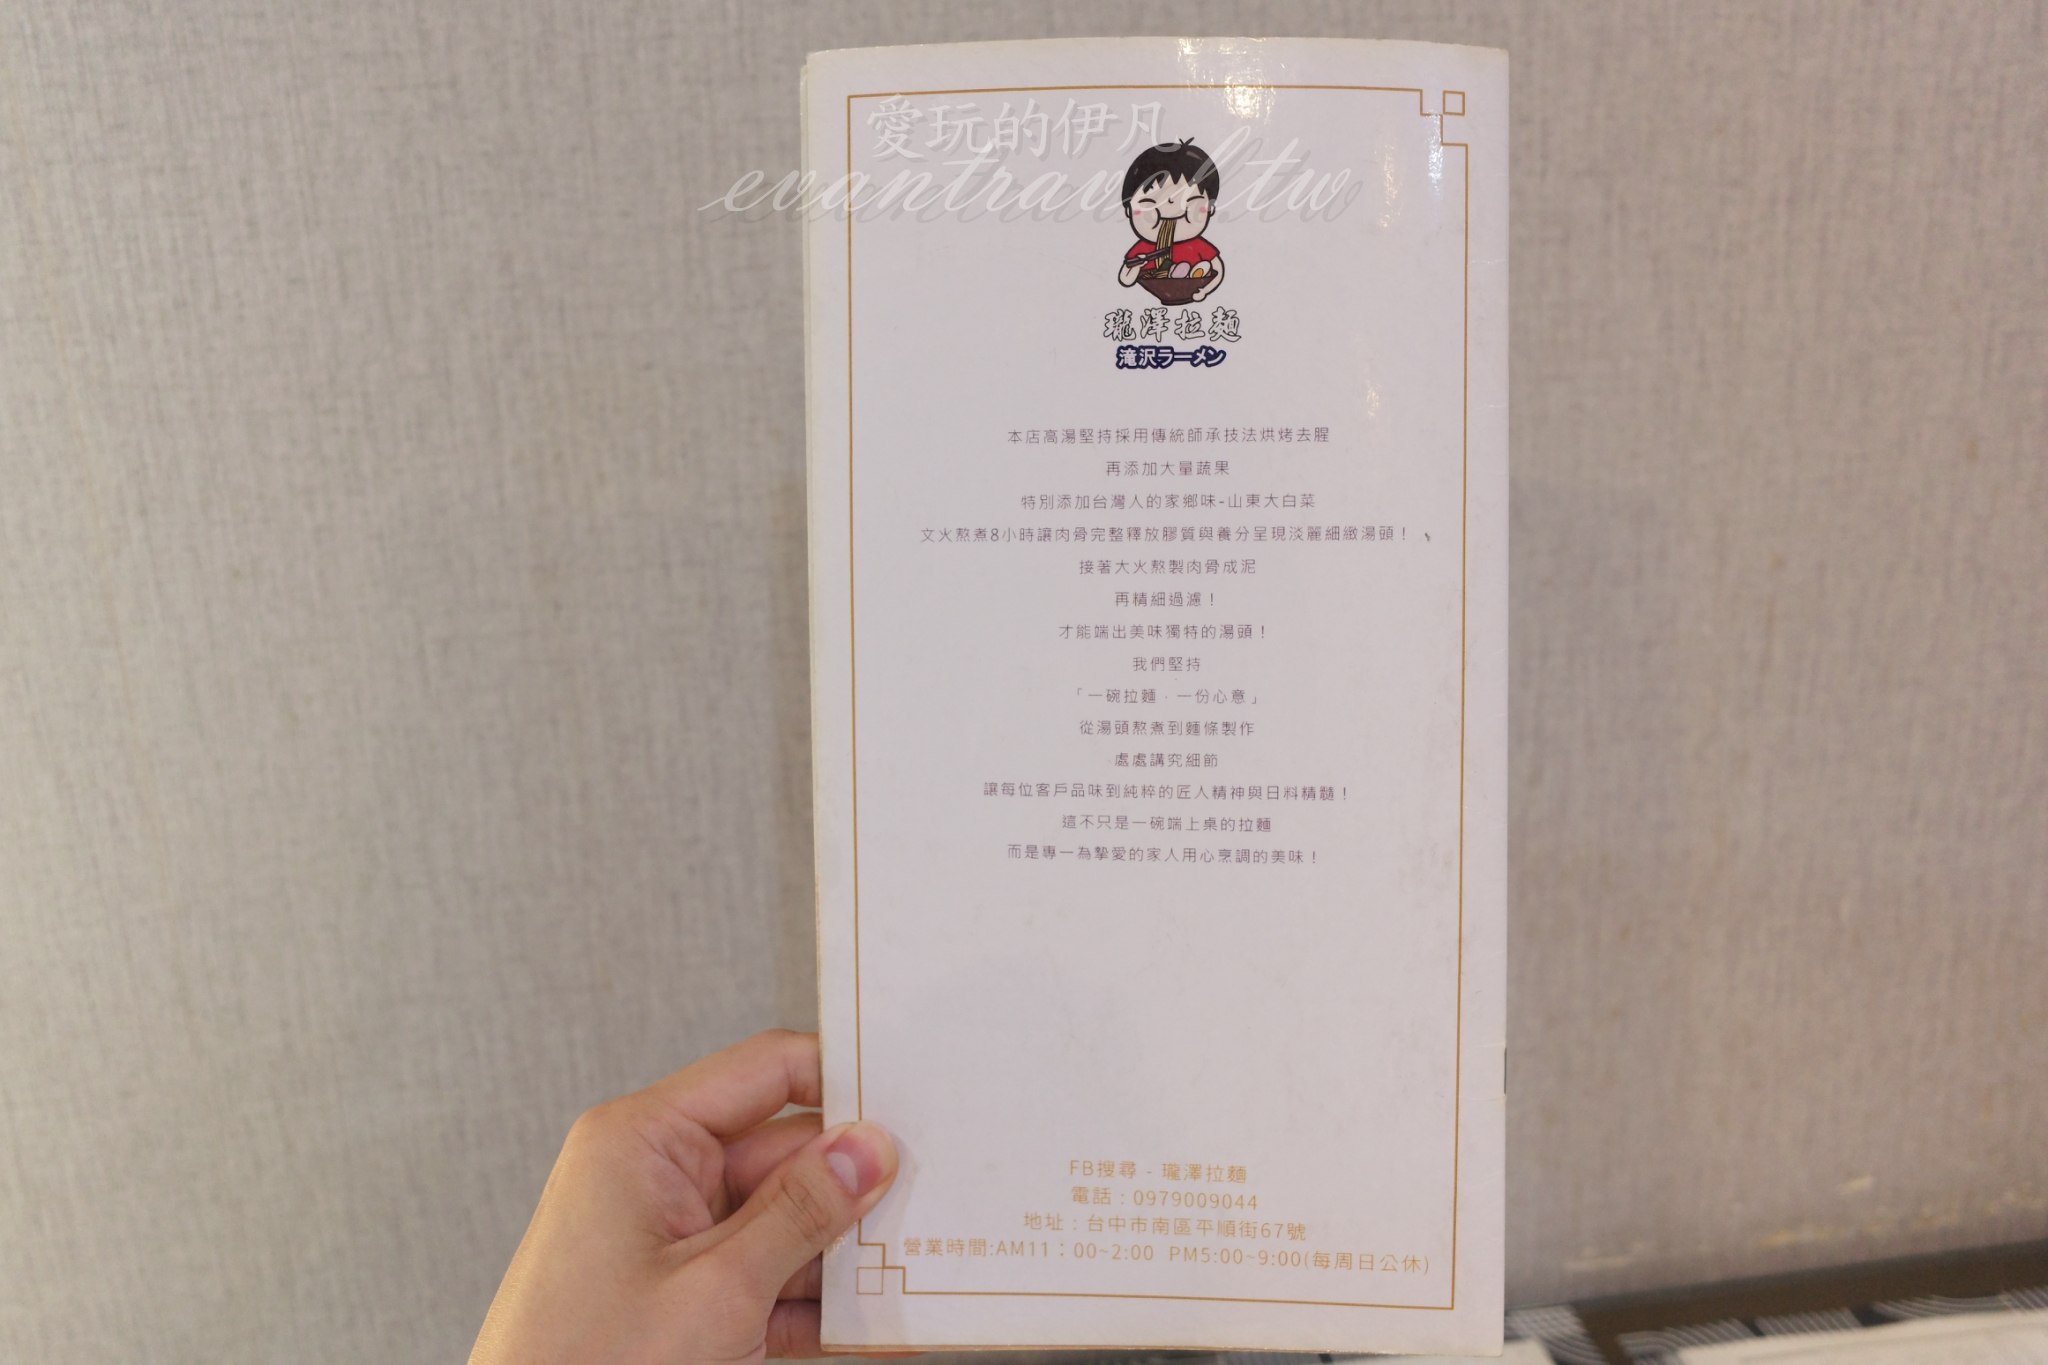 愛玩的伊凡
evantravel.tw
瀧澤拉麵
滝沢ラーメン
本店高湯堅持採用傳統師承技法烘烤去腥
再添加大量蔬果
特別添加台灣人的家鄉味-山東大白菜
文火熬煮8小時讓肉骨完整釋放膠質與養分呈現淡麗細緻湯頭！
接著大火熬製肉骨成泥
再精細過濾！
才能端出美味獨特的湯頭！
我們堅持
「一碗拉麵．一份心意」
從湯頭熬煮到麵條製作
處處講究細節
讓每位客戶品味到純粹的匠人精神與日料精髓！
這不只是一碗端上桌的拉麵
而是專一為摯愛的家人用心烹調的美味！
FB搜尋 - 瀧澤拉麵
電話：0979009044
地址：台中市南區平順街67號
營業時間:AM11：00~2:00 PM5:00~9:00(每周日公休)